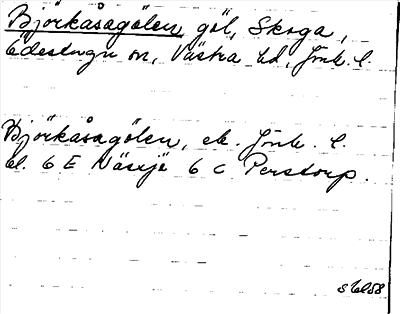 Björkåsagölen, göl, Skoga,
Edestugu sn, Västra hd, Jönk. l.
Björkåsagölen, ek. Jönk. l.
bl. 6 E Nässjö 6 c Perstorp.